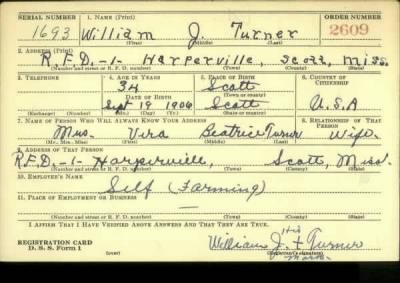 SERIAL NUMBER 1. NAME (Print) ORDER NUMBER
1693 William J. Turner 2609
(First) (Middle) (Last)
2. ADDRESS (Print)
R.F.D.-1- Harperville, Scott, Miss.
(Number and street or R. F. D. number) (Town) (County) (State)
3. TELEPHONE 4. AGE IN YEARS 5. PLACE OF BIRTH 6. COUNTRY OF CITIZENSHIP
34 Scott
DATE OF BIRTH (Town or county)
Sept 19 1906 Scott U.S.A
(Exchange) (Number) (Mo.) (Day) (Yr.) (State or country)
7. NAME OF PERSON WHO WILL ALWAYS KNOW YOUR ADDRESS 8. RELATIONSHIP OF THAT PERSON
Mrs. Vera Beatrice Turner Wife
(Mr., Mrs., Miss) (First) (Middle) (Last)
9. ADDRESS OF THAT PERSON
R.F.D.-1- Harperville, Scott, Miss.
(Number and street or R. F. D. number) (Town) (County) (State)
10. EMPLOYER'S NAME
Self (Farming)
11. PLACE OF EMPLOYMENT OR BUSINESS
(Number and street or R. F. D. number) (Town) (County) (State)
I AFFIRM THAT I HAVE VERIFIED ABOVE ANSWERS AND THAT THEY ARE TRUE.
His
REGISTRATION CARD William J. X Turner
D. S. S. Form 1 (over) (Registrant's signature)
Mark